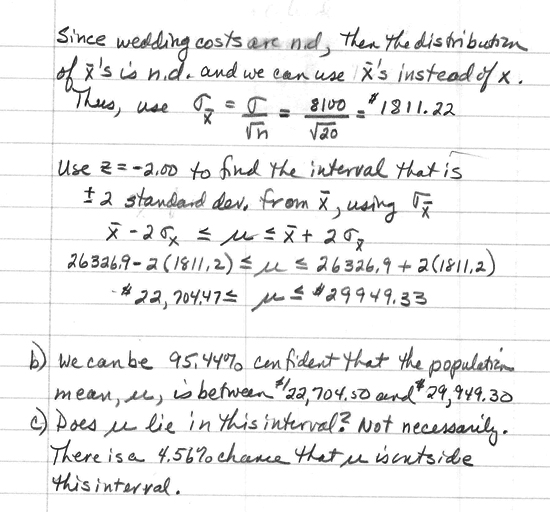 Since wedding costs are n.d, then the distribution
of x̄'s is n.d. and we can use x̄'s instead of x.
Thus, use σx̄ = σ/√n = 8100/√20 = $1811.22
Use z = -2.00 to find the interval that is
± 2 standard dev. from x̄, using σx̄
x̄ - 2σx ≤ μ ≤ x̄ + 2σx̄
26326.9 - 2(1811.2) ≤ μ ≤ 26326.9 + 2(1811.2)
$22,704.47 ≤ μ ≤ $29949.33
b) We can be 95.44% confident that the population
mean, μ, is between $22,704.50 and $29,949.30
c) Does μ lie in this interval? Not necessarily.
There is a 4.56% chance that μ is outside
this interval.